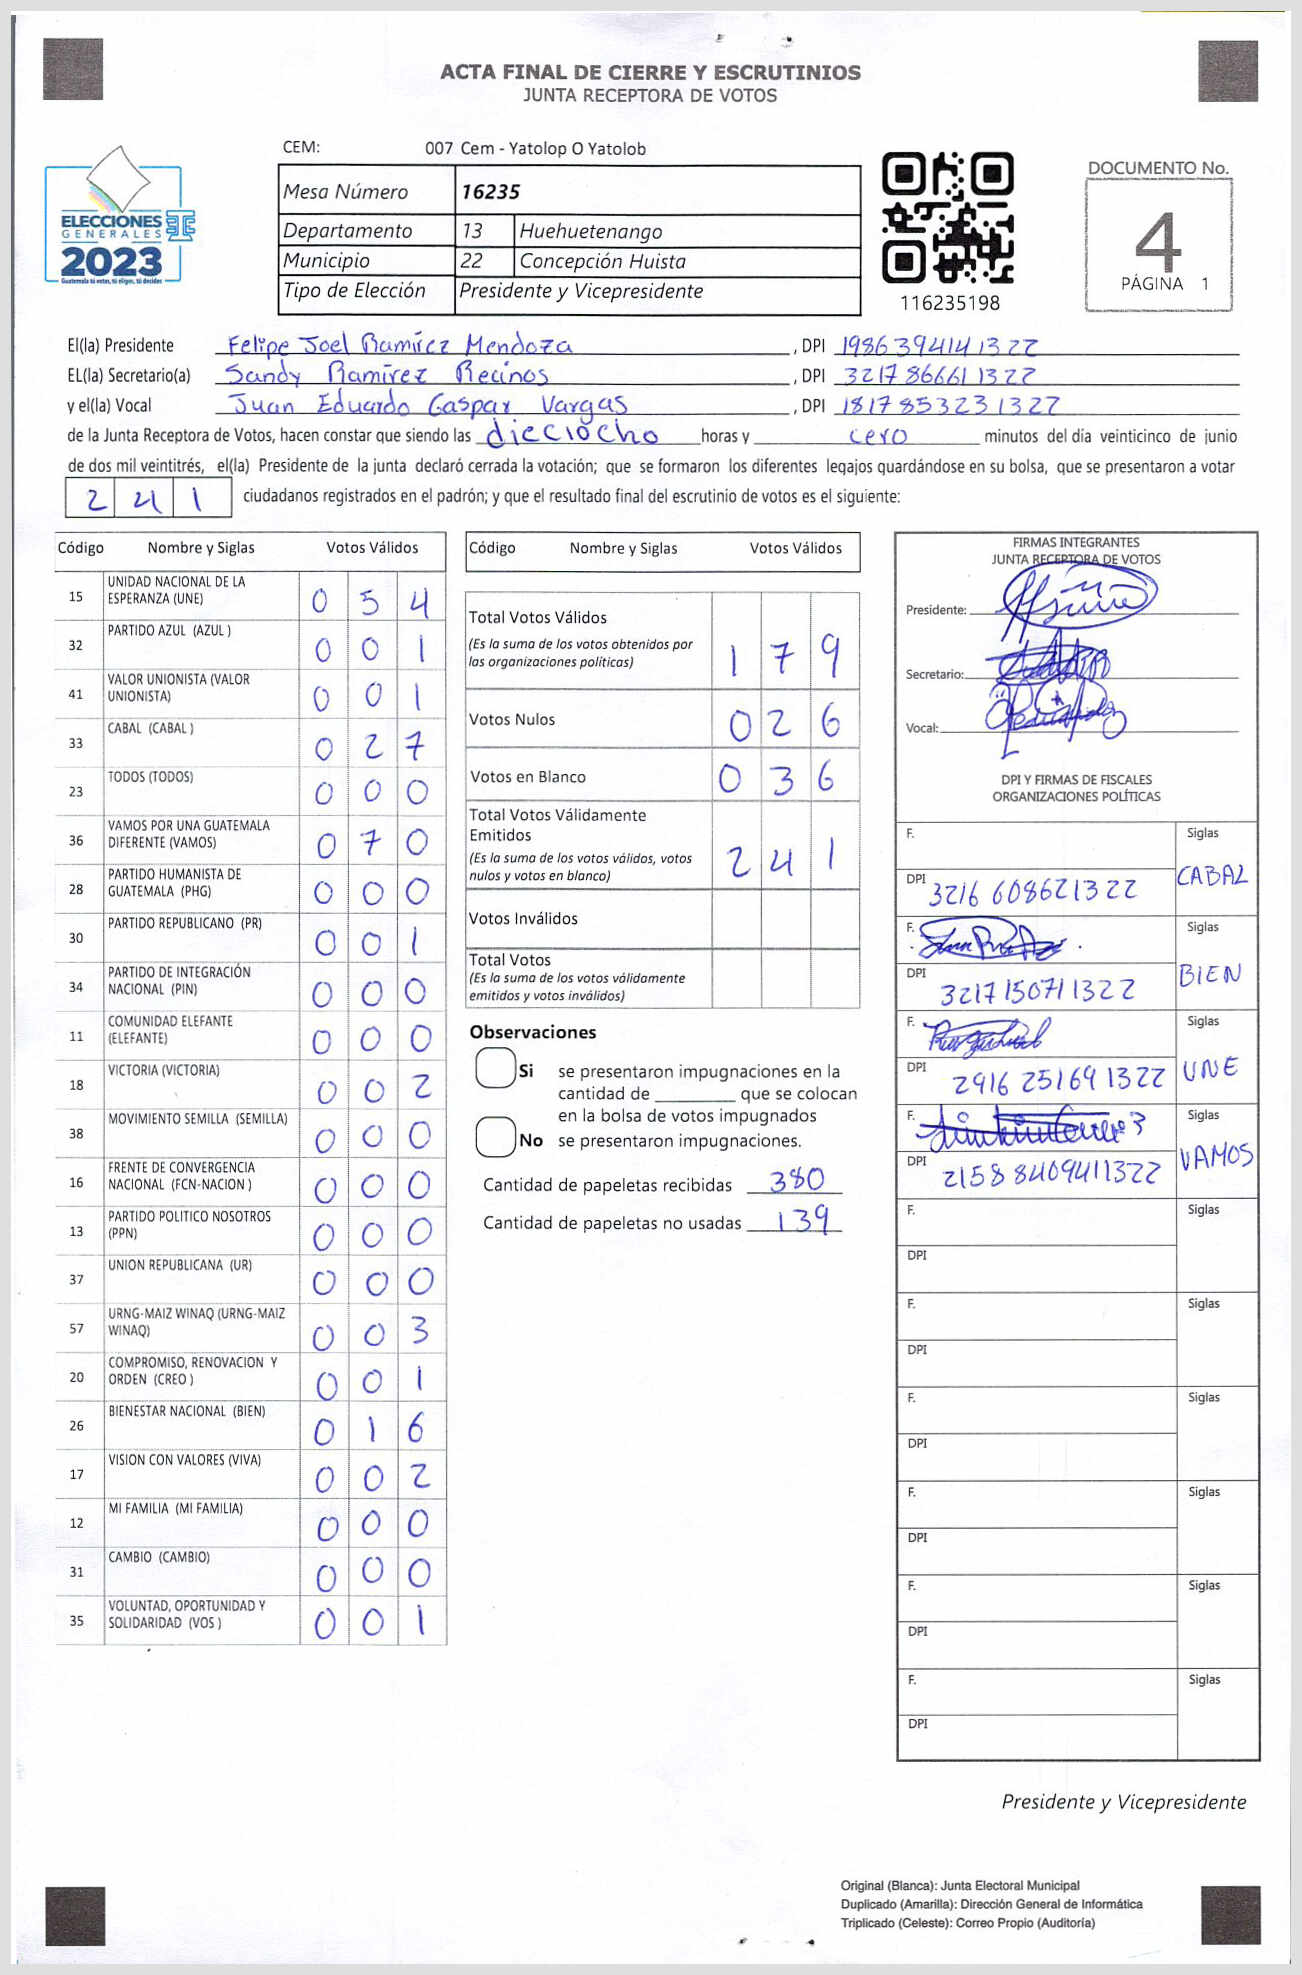 ACTA FINAL DE CIERRE Y ESCRUTINIOS
JUNTA RECEPTORA DE VOTOS
ELECCIONES
GENERALES
2023
Guatemala tú votas, tú eliges, tú decides
CEM: 007 Cem - Yatolop O Yatolob
Mesa Número 16235
Departamento 13 Huehuetenango
Municipio 22 Concepción Huista
Tipo de Elección Presidente y Vicepresidente
116235198
DOCUMENTO No.
4
PÁGINA 1
El(la) Presidente Felipe Joel Ramírez Mendoza , DPI 1986394141322
EL(la) Secretario(a) Sandy Ramírez Recinos , DPI 3217866611322
y el(la) Vocal Juan Eduardo Gaspar Vargas , DPI 1817853231322
de la Junta Receptora de Votos, hacen constar que siendo las dieciocho horas y cero minutos del día veinticinco de junio
de dos mil veintitrés, el(la) Presidente de la junta declaró cerrada la votación; que se formaron los diferentes legajos guardándose en su bolsa, que se presentaron a votar
2 4 1 ciudadanos registrados en el padrón; y que el resultado final del escrutinio de votos es el siguiente:
Código Nombre y Siglas Votos Válidos
15 UNIDAD NACIONAL DE LA ESPERANZA (UNE) 0 5 4
32 PARTIDO AZUL (AZUL ) 0 0 1
41 VALOR UNIONISTA (VALOR UNIONISTA) 0 0 1
33 CABAL (CABAL ) 0 2 7
23 TODOS (TODOS) 0 0 0
36 VAMOS POR UNA GUATEMALA DIFERENTE (VAMOS) 0 7 0
28 PARTIDO HUMANISTA DE GUATEMALA (PHG) 0 0 0
30 PARTIDO REPUBLICANO (PR) 0 0 1
34 PARTIDO DE INTEGRACIÓN NACIONAL (PIN) 0 0 0
11 COMUNIDAD ELEFANTE (ELEFANTE) 0 0 0
18 VICTORIA (VICTORIA) 0 0 2
38 MOVIMIENTO SEMILLA (SEMILLA) 0 0 0
16 FRENTE DE CONVERGENCIA NACIONAL (FCN-NACION ) 0 0 0
13 PARTIDO POLITICO NOSOTROS (PPN) 0 0 0
37 UNION REPUBLICANA (UR) 0 0 0
57 URNG-MAIZ WINAQ (URNG-MAIZ WINAQ) 0 0 3
20 COMPROMISO, RENOVACION Y ORDEN (CREO ) 0 0 1
26 BIENESTAR NACIONAL (BIEN) 0 1 6
17 VISION CON VALORES (VIVA) 0 0 2
12 MI FAMILIA (MI FAMILIA) 0 0 0
31 CAMBIO (CAMBIO) 0 0 0
35 VOLUNTAD, OPORTUNIDAD Y SOLIDARIDAD (VOS ) 0 0 1
Código Nombre y Siglas Votos Válidos
Total Votos Válidos
(Es la suma de los votos obtenidos por
las organizaciones políticas) 1 7 9
Votos Nulos 0 2 6
Votos en Blanco 0 3 6
Total Votos Válidamente
Emitidos
(Es la suma de los votos válidos, votos
nulos y votos en blanco) 2 4 1
Votos Inválidos
Total Votos
(Es la suma de los votos válidamente
emitidos y votos inválidos)
Observaciones
Si se presentaron impugnaciones en la
cantidad de ________ que se colocan
en la bolsa de votos impugnados
No se presentaron impugnaciones.
Cantidad de papeletas recibidas 380
Cantidad de papeletas no usadas 139
FIRMAS INTEGRANTES
JUNTA RECEPTORA DE VOTOS
Presidente:
Secretario:
Vocal:
DPI Y FIRMAS DE FISCALES
ORGANIZACIONES POLÍTICAS
F. Siglas
DPI 3216 608621322 CABAL
F. Siglas
DPI 3217150711322 BIEN
F. Siglas
DPI 2916 251691322 UNE
F. Siglas
DPI 2158 8409411322 VAMOS
F. Siglas
DPI
F. Siglas
DPI
F. Siglas
DPI
F. Siglas
DPI
F. Siglas
DPI
F. Siglas
DPI
Presidente y Vicepresidente
Original (Blanca): Junta Electoral Municipal
Duplicado (Amarilla): Dirección General de Informática
Triplicado (Celeste): Correo Propio (Auditoría)